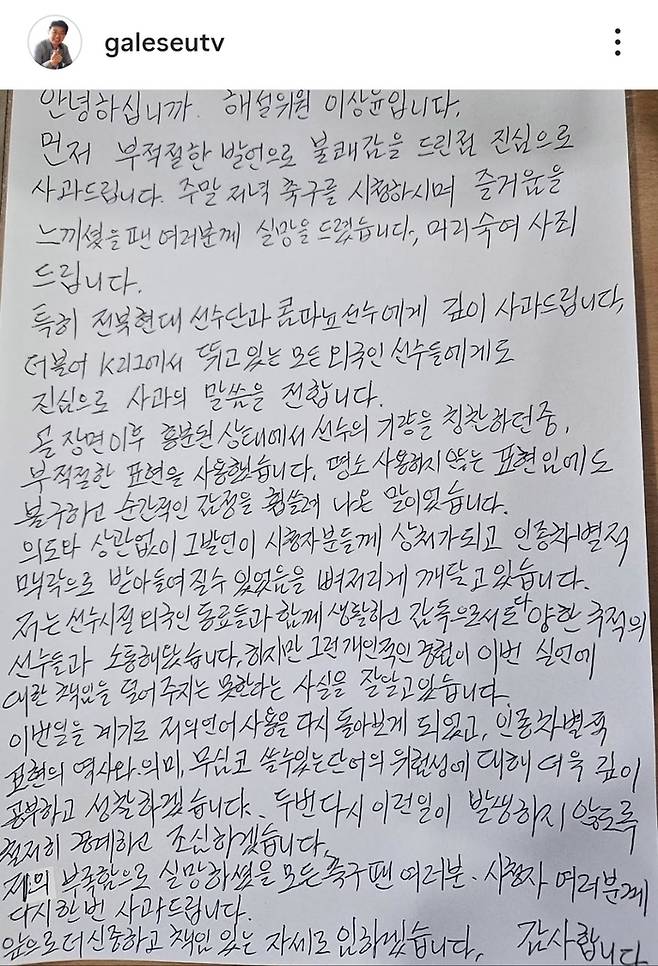 galeseutv
안녕하십니까. 해설위원 이상윤입니다.
먼저 부적절한 발언으로 불쾌감을 드린점 진심으로
사과드립니다. 주말 저녁 축구를 시청하시며 즐거움을
느끼셨을 팬 여러분께 실망을 드렸습니다, 머리숙여 사죄
드립니다.
특히 전북현대 선수단과 콤파뇨선수에게 깊이 사과드립니다,
더불어 K리그에서 뛰고 있는 모든 외국인 선수들에게도
진심으로 사과의 말씀을 전합니다.
골 장면이후 흥분된 상태에서 선수의 기량을 칭찬하던중,
부적절한 표현을 사용했습니다. 평소 사용하지 않는 표현임에도
불구하고 순간적인 감정을 휩쓸려 나온 말이었습니다.
의도와 상관없이 그발언이 시청자분들께 상처가되고 인종차별적
맥락으로 받아들여질수 있었음을 뼈저리게 깨닫고 있습니다.
저는 선수시절 외국인 동료들과 함께 생활하고 감독으로서도 다양한 국적의
선수들과 소통해왔습니다. 하지만 그런 개인적인 경험이 이번 실언에
대한 책임을 덜어 주지는 못한하는 사실을 잘알고 있습니다.
이번일을 계기로 저의언어 사용을 다시 돌아보게 되었고, 인종차별적
표현의 역사와 의미, 무심코 쓸수있는 단어의 위험성에 대해 더욱 깊이
공부하고 성찰하겠습니다. 두번다시 이런일이 발생하지 않도록
철저히 경계하고 조심하겠습니다.
저의 부족함으로 실망하셨을 모든 축구 팬 여러분. 시청자 여러분께
다시한번 사과드립니다.
앞으로 더 신중하고 책임 있는 자세로 임하겠습니다, 감사합니다